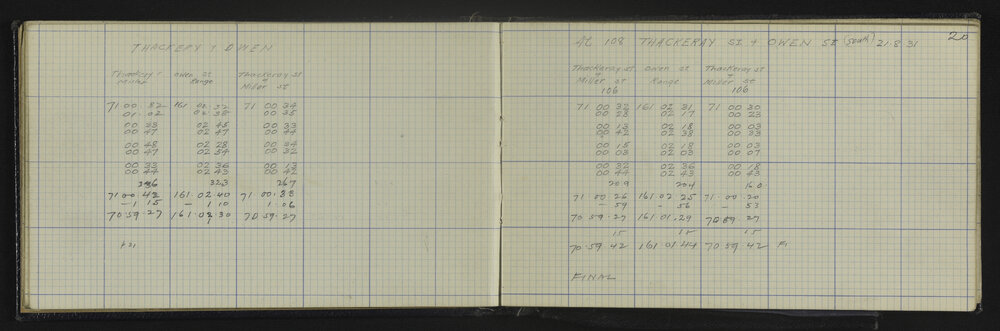 THACKERY + OWEN
Thackery + Owen St Thackeray st
Miller Range + Miller st
71 00 32 161 02 32 71 00 34
01 02 02 38 00 35
00 38 02 45 00 33
00 47 02 47 00 44
00 48 02 28 00 34
00 47 02 54 00 32
00 33 02 36 00 13
00 44 02 43 00 42
336 323 267
71 00 42 161.02.40 71.00.33
-1 15 -1 10 1.06
70 59.27 161.01.30 70.59.27
+21
20
At 108 THACKERAY ST + OWEN ST (South) 21.8.31
Thackeray st Owen st Thackeray st
+ Miller st Range + Miller st
106 106
71 00 32 161 02 31 71 00 30
00 23 02 17 00 23
00 13 02 18 00 03
00 42 02 38 00 33
00 15 02 18 00 03
00 03 02 03 00 07
00 32 02 36 00 18
00 44 02 43 00 43
209 204 160
71 00 26 161 02 25 71.00.20
- 59 - 56 - 53
70 59.27 161.01.29 70 59.27
15 15 15
70 59 42 161 01.44 70 59 42
FINAL